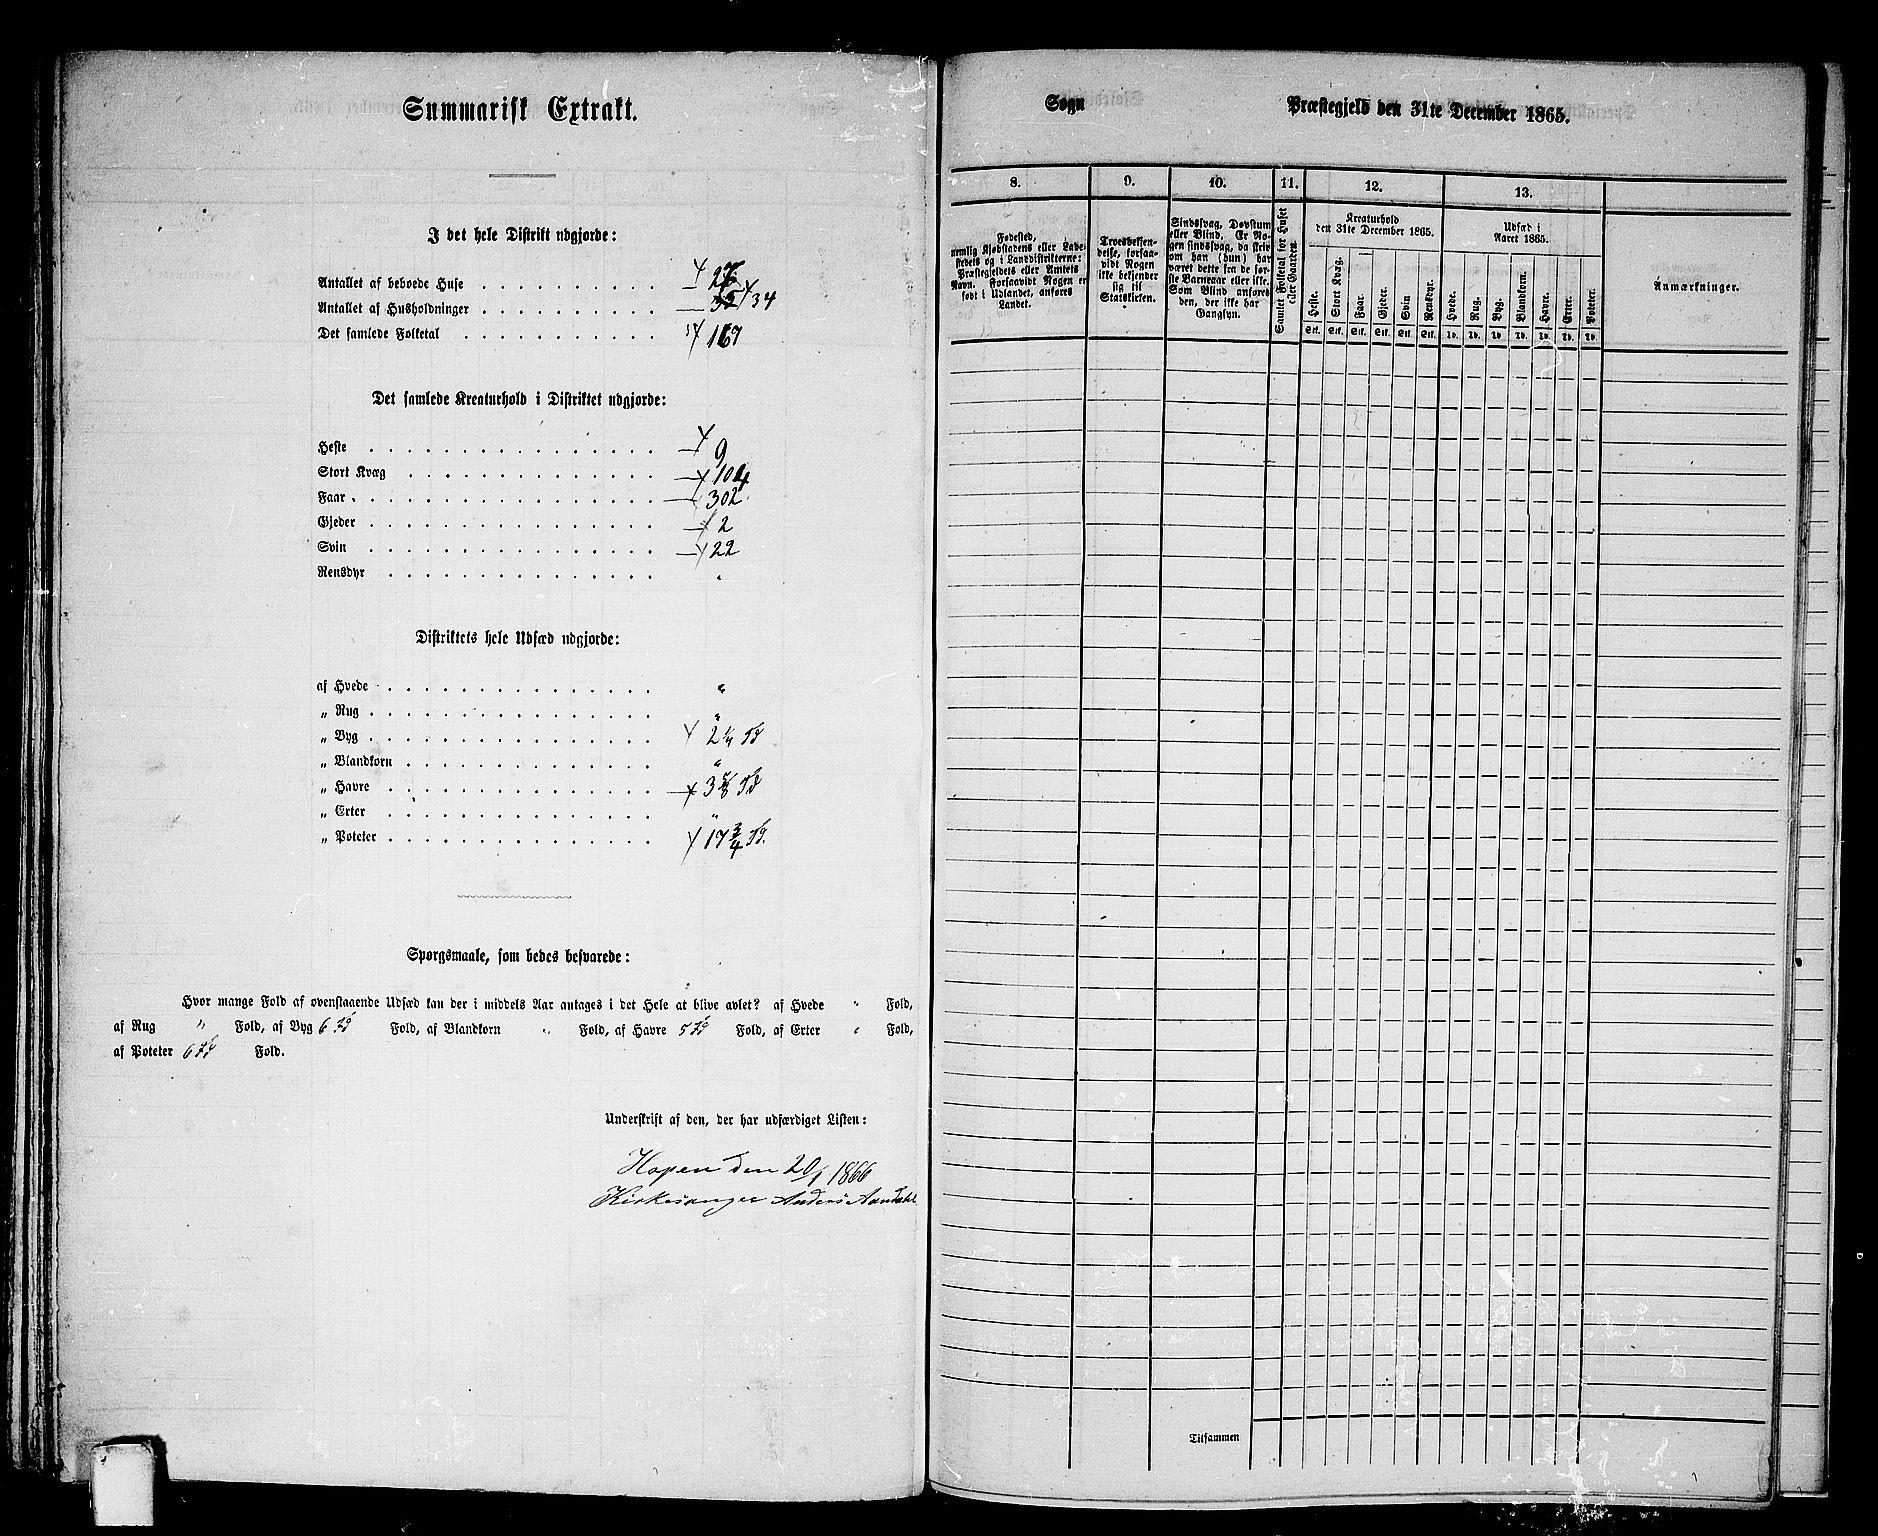 Summarisk Extrakt.
I det hele Distrikt udgjorde:
Antallet af beboede Huse 27
Antallet af Husholdninger 34
Det samlede Folketal 167
Det samlede Kreaturhold i Distriktet udgjorde:
Heste 9
Stort Kvæg 104
Faar 302
Gjeder 2
Svin 22
Rensdyr "
Distriktets hele Udsæd udgjorde:
af Hvede "
" Rug "
" Byg 2 1/4 Td
" Blandkorn "
" Havre Td
" Erter "
" Poteter 17 3/4 Td.
Spørgsmaale, som bedes besvarede:
Hvor mange Fold af ovenstaaende Udsæd kan der i middels Aar antages i det Hele at blive avlet? af Hvede " Fold,
af Rug " Fold, af Byg 6 Fold, af Blandkorn " Fold, af Havre 5 Fold, af Erter " Fold,
af Poteter 6 Fold.
Underskrift af den, der har udfærdiget Listen:
Hopen den 20/1 1866
Kirkesanger Anders Aandahl
Sogn Præstegjeld den 31te December 1865.
8. 9. 10. 11. 12. 13.
Fødested,
nemlig Kjøbstadens eller Lade-
stedets og i Landdistrikterne:
Præstegjeldets eller Amtets
Navn. Forsaavidt Nogen er
født i Udlandet, anføres
Landet.
Troesbekjen-
delse, forsaa-
vidt Nogen
ikke bekjender
sig til
Statskirken.
Sindssvag, Døvstum
eller Blind. Er No-
gen sindssvag, da skriv
om han (hun) har
været dette fra de før-
ste Barneaar eller ikke.
Som Blind anføres
den, der ikke har
Gangsyn.
Samlet Folketal for Huset
eller Gaarden.
Kreaturhold
den 31te December 1865.
Heste. Stort Kvæg. Faar. Gjeder. Svin Rensdyr.
Stk. Stk. Stk. Stk. Stk. Stk.
Udsæd i
Aaret 1865.
Hvede. Rug. Byg. Blandkorn. Havre. Erter. Poteter.
Td. Td. Td. Td. Td. Td. Td.
Anmærkninger.
Tilsammen